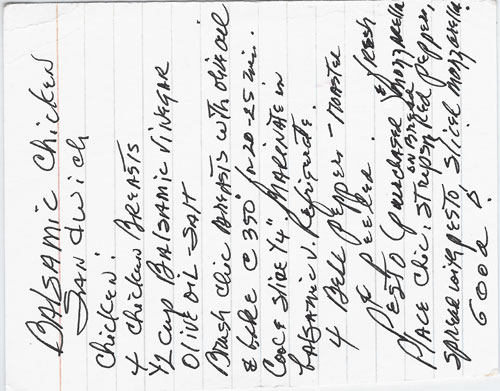 BALSAMIC Chicken
SANdwich
Chicken:
4 Chicken BREASTS
1/2 cup BALSAMIC VINEGAR
OliVE OIL - SALT
Brush chic BREASTS with olive oil
& bake @ 350° 20-25 min.
Cool & Slice 1/4" MARINATE in
balsamic V. Refrigerate.
4 Bell Pepper - ROASTED
& Peeled.
PESTO (purchased) & fresh mozzarella
PlACE Chic. strips on bread, Red Pepper,
spread with pesto & slices mozzarella.
Good!